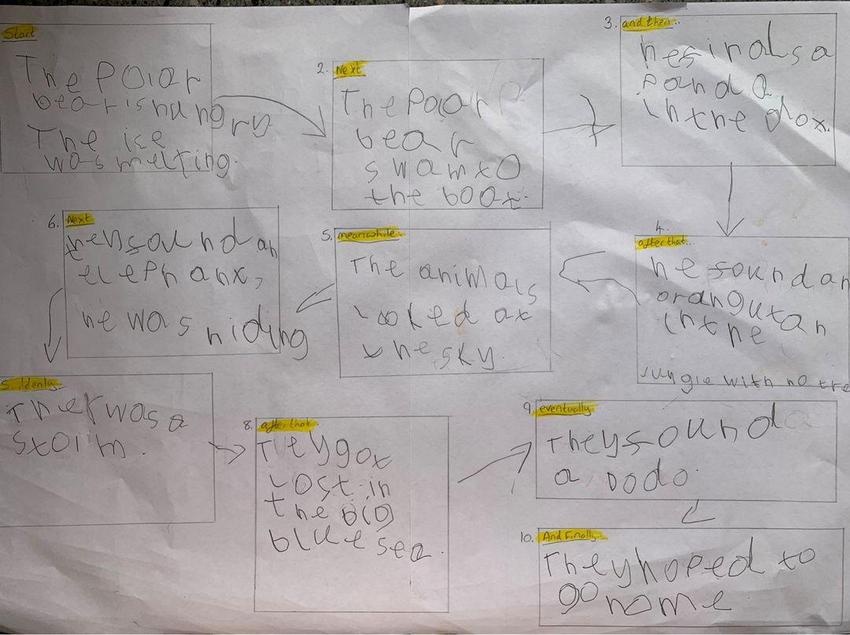 Start
The Polar
bear is hungry
The ice
was melting.
2. Next
The Polar
bear
swam to
the boat.
3. and then..
he
panda
in the box.
4.
after that..
he found an
orangutan
in the
jungle with no tre
5. meanwhile..
The animals
looked at
the sky.
6. Next
they found an
elephant,
he was hiding
Suddenly..
Ther was a
storm.
8. after that..
They got
lost in
the big
blue sea.
9. eventually..
They found
a dodo.
10. And finally..
They hoped to
go home